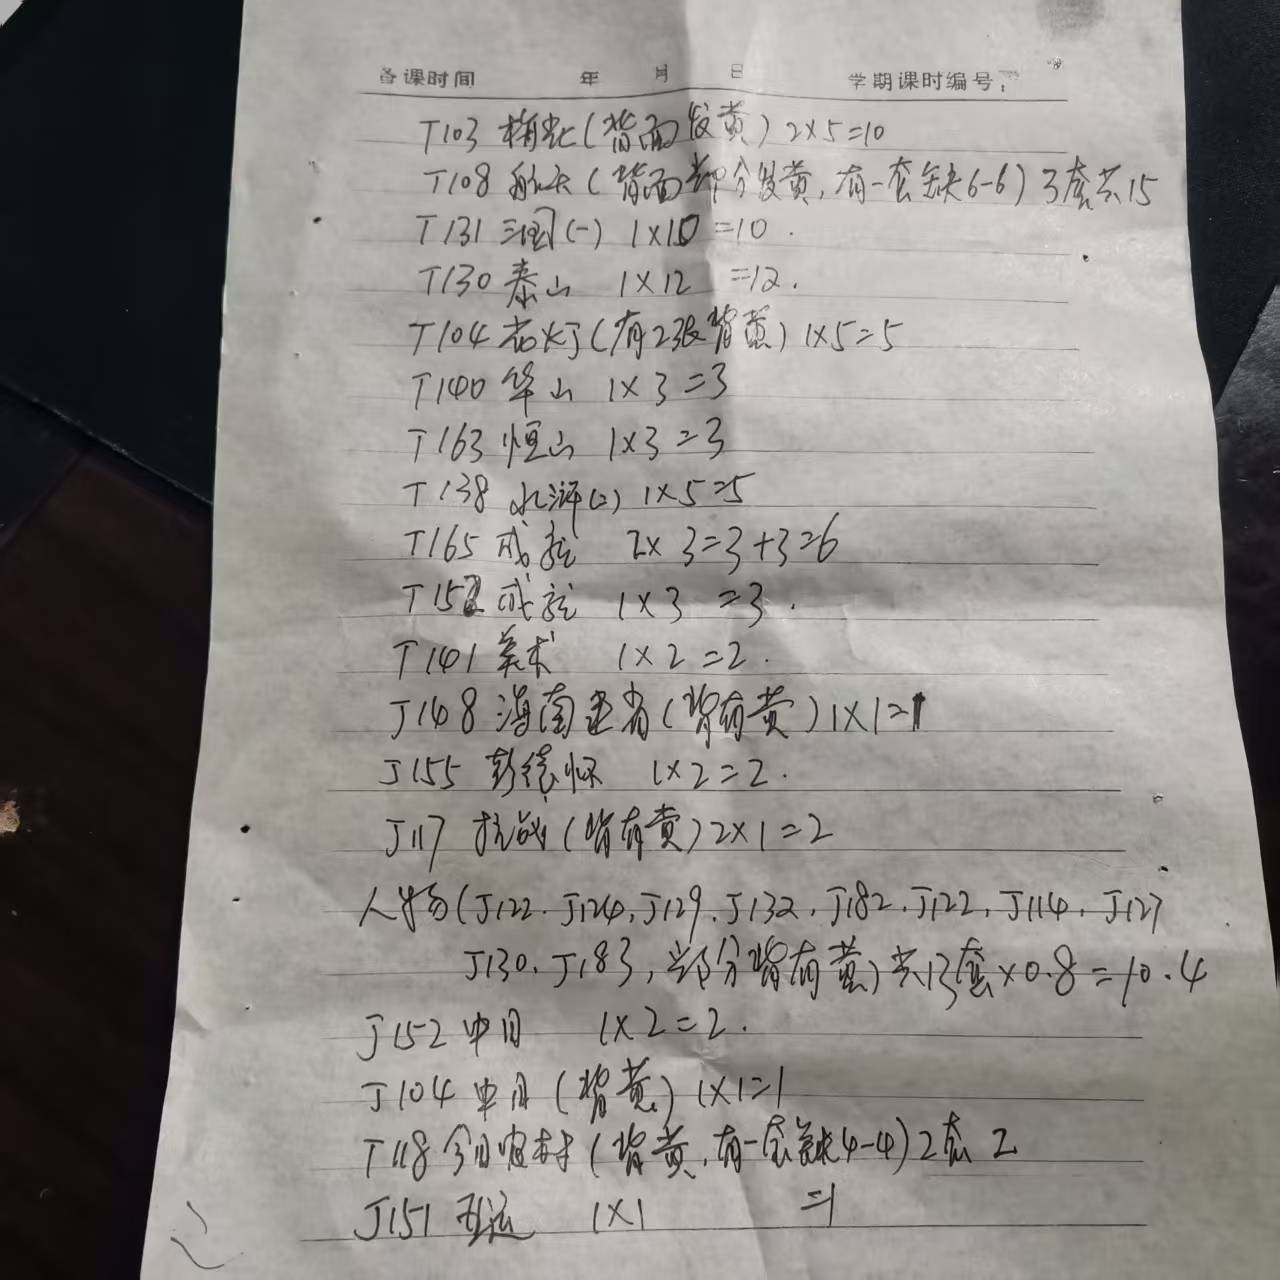 备课时间 年 月 日 学期课时编号
T103 梅花(背面发黄) 2×5=10
T108 航天(背面部分发黄,有一套缺6-6) 3套共15
T131 三国(一) 1×10=10.
T130 泰山 1×12 =12.
T104 花灯(有2张背黄) 1×5=5
T140 华山 1×3=3
T163 恒山 1×3=3
T138 水浒(二) 1×5=5
T165 成就 2×3=3+3=6
T152 成就 1×3 =3.
T141 美术 1×2=2.
J148 海南建省(背有黄) 1×1=1
J155 彭德怀 1×2=2.
J117 抗战(背有黄) 2×1=2
人物(J122.J124,J129.J132,J182.J122,J114.J127
J130.J183,部分背有黄)共13套×0.8=10.4
J152 中日 1×2=2.
J104 中日(背黄) 1×1=1
T118 今日农村(背黄,有一套缺4-4) 2套 2
J151 亚运 1×1 =1